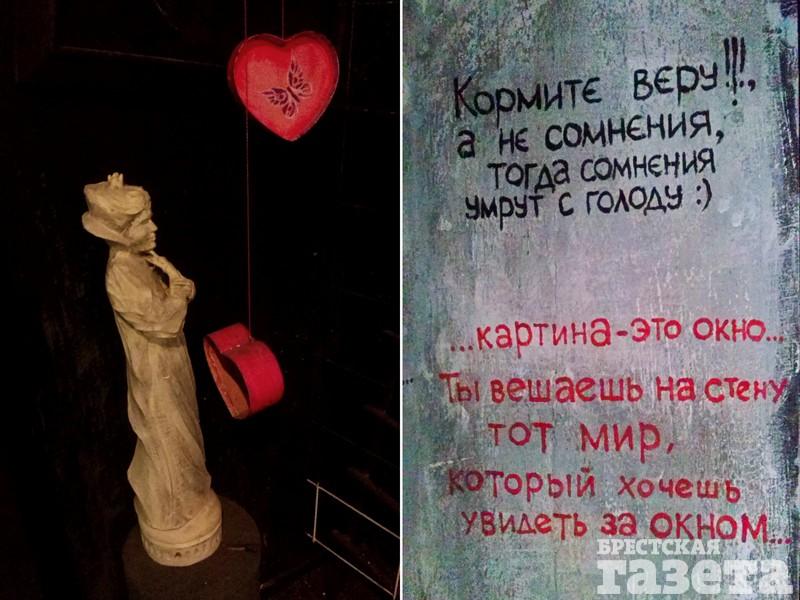 Кормите веру!!!.,
а не сомнения,
тогда сомнения
умрут с голоду :)
...картина-это окно...
Ты вешаешь на стену
тот мир,
который хочешь
увидеть за окном...
БРЕСТСКАЯ
газета